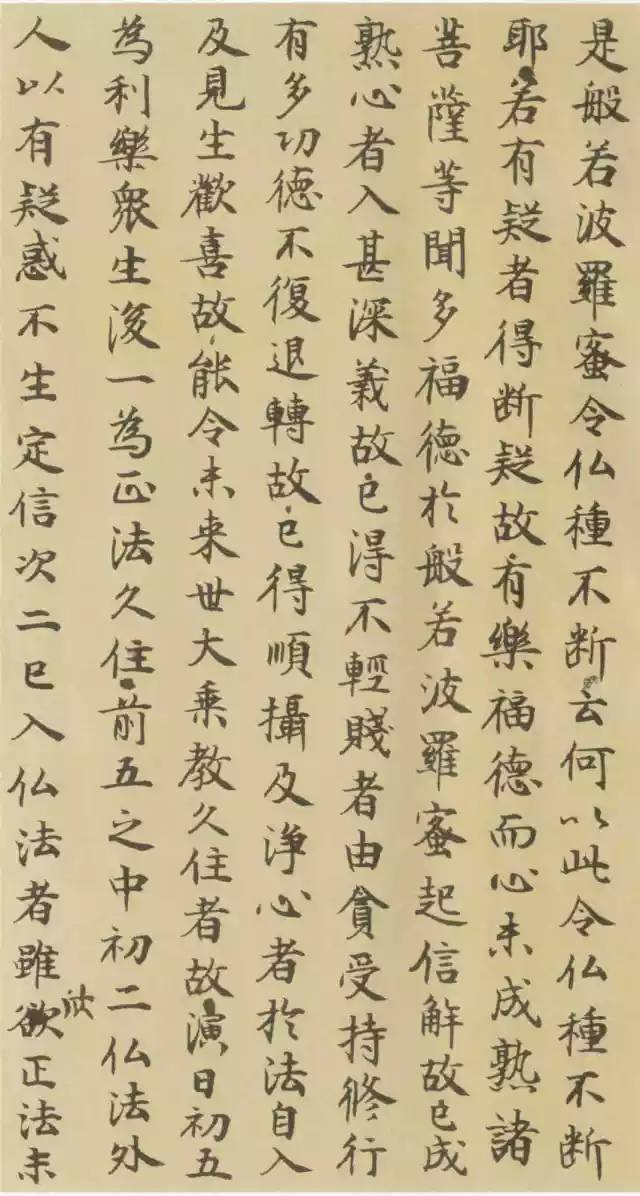 是般若波羅蜜令仏種不断云何以此令仏種不断
耶若有疑者得断疑故有樂福德而心未成熟諸
菩薩等聞多福德於般若波羅蜜起信解故已成
熟心者入甚深義故已得不輕賤者由貪受持修行
有多功德不復退轉故已得順攝及淨心者於法自入
及見生歡喜故能令未来世大乘教久住者故演曰初五
為利樂衆生後一為正法久住前五之中初二仏法外
人以有疑惑不生定信次二已入仏法者雖欲正法未